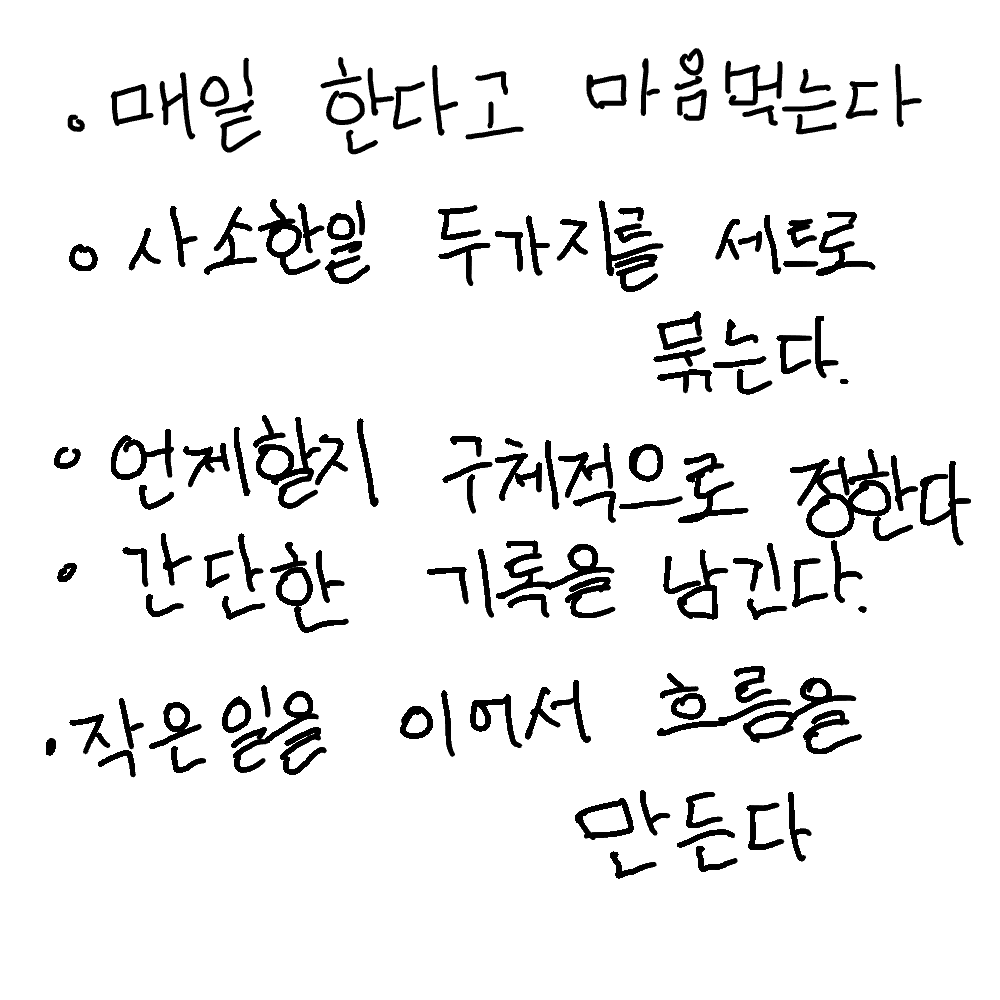 • 매일 한다고 마음먹는다
• 사소한일 두가지를 세트로
묶는다.
• 언제할지 구체적으로 정한다
• 간단한 기록을 남긴다.
• 작은일을 이어서 흐름을
만든다